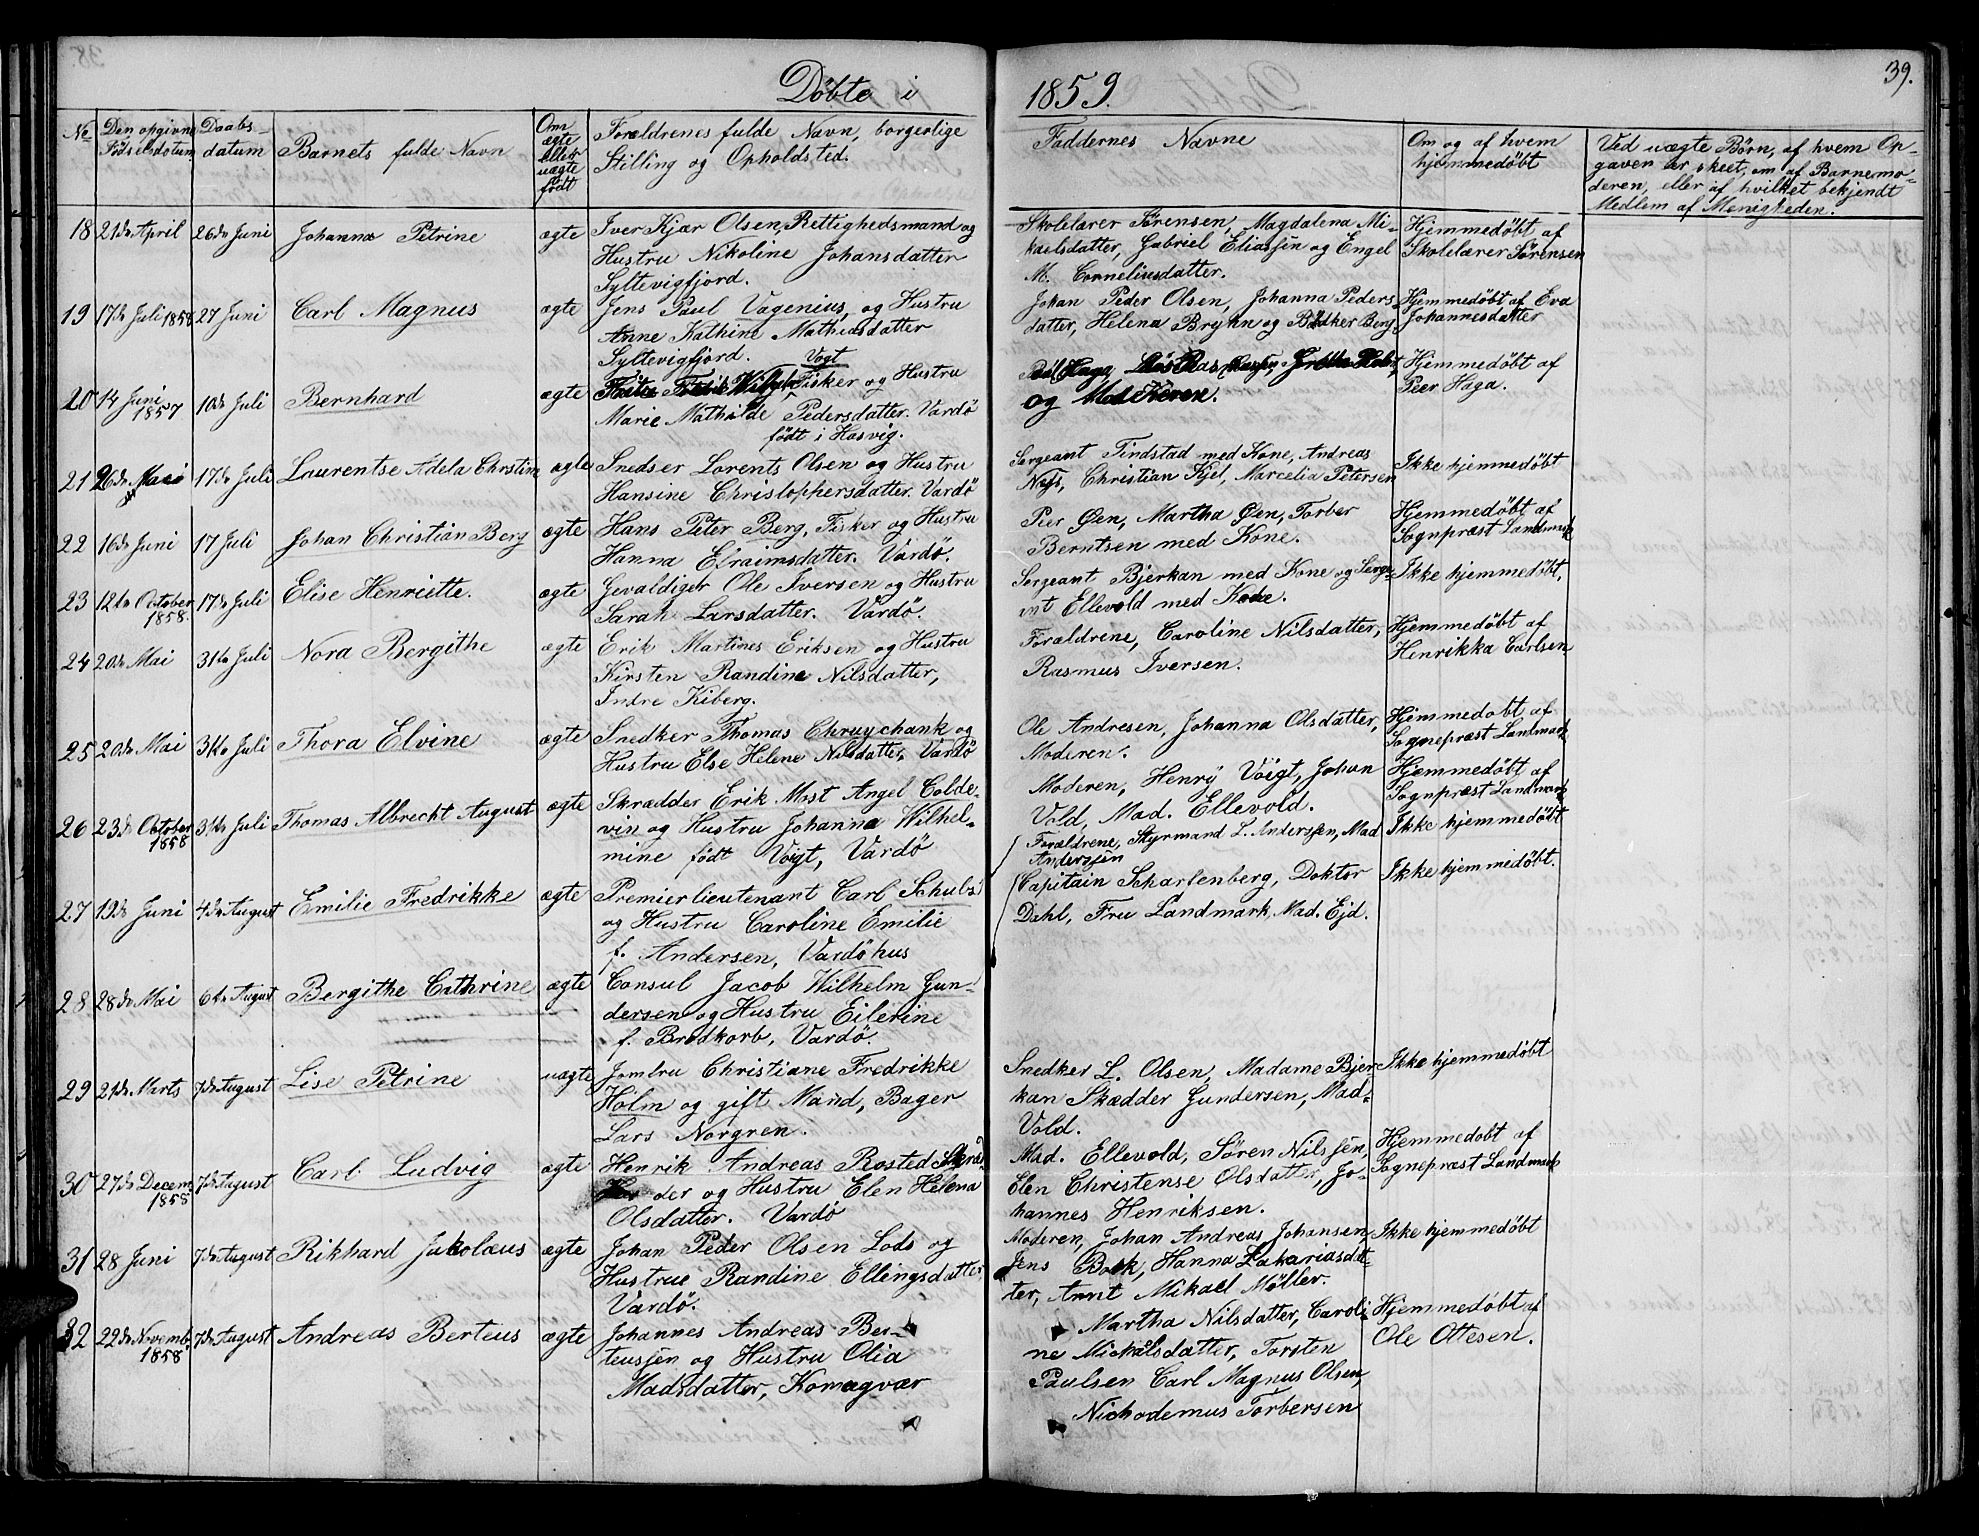 Döbte i 1859.
39.
No
Den opgivne Födselsdatum
Daabsdatum
Barnets fulde Navn
Om ægte eller uægte født
Forældrenes fulde Navn, borgerlige Stilling og Opholdsted.
Faddernes Navne
Om og af hvem hjemmedøbt
Ved uægte Børn, af hvem Opgaven er skeet, om af Barnemoderen, eller af hvilket bekjendt Medlem af Menigheden.
18 21de April 26de Juni Johanna Petrine ægte Iver Kjær Olsen, Rettighedsmand og
Hustru Nikoline Johansdatter
Syltevigfjord.
Skolelærer Sørensen, Magdalena Mi-
kaelsdatter, Gabriel Eliassen og Engel
M. Corneliusdatter.
Hjemmedöbt af
Skolelærer Sørensen
19 17de Juli 1858 27 Juni Carl Magnus ægte Jens Paul Vagenius, og Hustru
Anne Kathine Mathiasdatter
Syltevigfjord.
Johan Peder Olsen, Johanna Peders
datter, Helena Bryhn og Bödker Berg.
Hjemmedöbt af Eva
Johannesdatter
20 14 Juni 1857 10de Juli Bernhard ægte Vogt
Fisker og Hustru
Marie Mathilde Pedersdatter. Vardö
født i Hasvig.
og
Hjemmedöbt af
Peer Haga.
21 26de Mai 17de Juli Laurentse Adela Chrstine ægte Snedser Lorents Olsen og Hustru
Hansine Christophersdatter. Vardö
Sergeant Tindstad med Kone, Andreas
Christian Kjel, Marcelia Petersen
Ikke hjemmedöbt
22 16de Juni 17 Juli Johan Christian Berg ægte Hans Peter Berg, Fisker og Hustru
Hanna Efraimsdatter. Vardö.
Peer Øen, Martha Øen, Torber
Berntsen med Kone.
Hjemmedöbt af
Sognpræst Landmark
23 12te October 1858. 17de Juli Elise Henriette. ægte Gevaldiger Ole Iversen og Hustru
Sarah Larsdatter. Vardö.
Sergeant Bjerkan med Kone og Serge-
ant Ellevold med Kone.
Ikke hjemmedöbt,
24 20de Mai 31te Juli Nora Bergithe ægte Erik Martines Eriksen og Hustru
Kirsten Randine Nilsdatter,
Indre Kiberg.
Forældrene, Caroline Nilsdatter,
Rasmus Iversen.
Hjemmedöbt af
Henrikka Carlsen
25 20de Mai 31te Juli Thora Elvine ægte Snedker Thomas Chruychank og
Hustru Else Helene Nilsdatter, Vardö
Ole Andresen, Johanna Olsdatter,
Moderen.
Hjemmedöbt af
Sognepræst Landmark
26 23de October 1858 31te Juli Thomas Albrecht August ægte Skrædder Erik Mост Angel Colde-
vin og Hustru Johanna Wilhel-
mine födt Voigt, Vardö
Moderen, Henry Voigt, Johan
Vold, Mad. Ellevold.
Hjemmedöbt af
Sognpræst Landmark
Forældrene, Styrmand L. Anderssen, Mad
Anderssen
Ikke hjemmedöbt
27 19de Juni 4de August Emilie Fredrikke ægte Premierlieutenant Carl Schulz
og Hustru Caroline Emilie
f. Andersen, Vardöhus
Capitain Scharfenberg, Doktor
Dahl, Fru Landmark, Mad. Ejd.
Ikke hjemmedöbt.
28 28de Mai 6te August Bergithe Cathrine ægte Consul Jacob Wilhelm Gun-
dersen og Hustru Eilerine
f. Brodkorb, Vardö.
29 21de Marts 7de August Lise Petrine uægte Jomfru Christiane Fredrikke
Holm og gift Mand, Bager
Lars Norgren.
Snedker L. Olsen, Madame Bjer-
kan Skædder Gundersen, Mad.
Vold.
Ikke hjemmedöbt
30 27de Decem 1858 7de August Carl Ludvig ægte Henrik Andreas Rosted Skræd
der og Hustru Elen Helena
Olsdatter. Vardö
Mad. Ellevold, Sören Nilssen,
Elen Christense Olsdatter, Jo-
hannes Henriksen.
Hjemmedöbt af
Sognepræst Landmark
31 28 Juni 7de August Rikhard Jakolæus ægte Johan Peder Olsen Lods og
Hustrue Randine Ellingsdatter
Vardö.
Moderen, Johan Andreas Johansen
Jens Bock, Hanna Zakariasdat-
ter, Arnt Mikael Möller.
Ikke hjemmedöbt
32 22de Novemb. 1858 7de August Andreas Berteus ægte Johannes Andreas Ber-
teussen og Hustru Olia
Madsdatter, Komagvær
Martha Nilsdatter, Caroli-
ne Michalsdatter, Torsten
Paulsen Carl Magnus Olsen,
Nichodemus Torbersen
Hjemmedöbt af
Ole Ottesen.